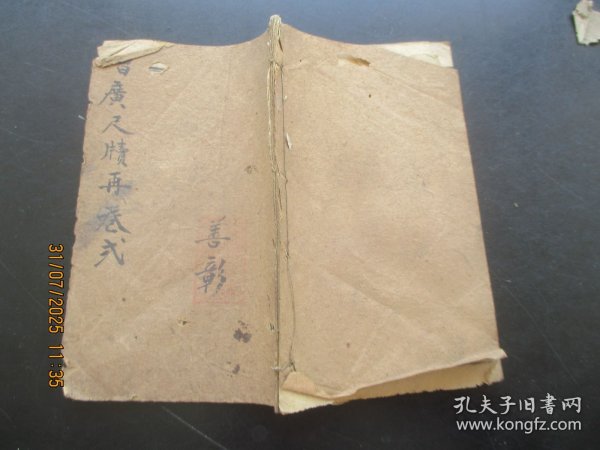 廣尺牘再卷弍
善彰
31/07/2025 11:35
孔夫子旧書网
www.kongfz.com